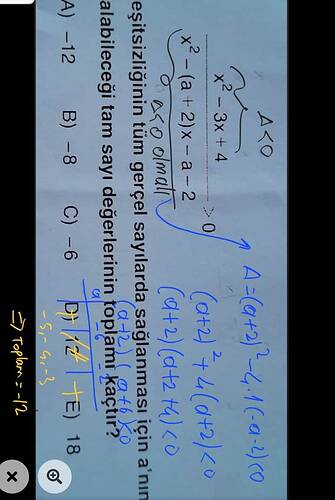 Δ<0
x² - 3x + 4
> 0
x² - (a + 2)x - a - 2
Δ<0 olmalı
Δ=(a+2)²-4.1(-a-2)<0
(a+2)²+4(a+2)<0
(a+2)(a+2+4)<0
(a+2)(a+6)<0
eşitsizliğinin tüm gerçel sayılarda sağlanması için a'nın
alabileceği tam sayı değerlerinin toplamı kaçtır?
A) -12 B) -8 C) -6 D) 12 E) 18
a -6
-5,-4,-3
⇒ Toplam = -12